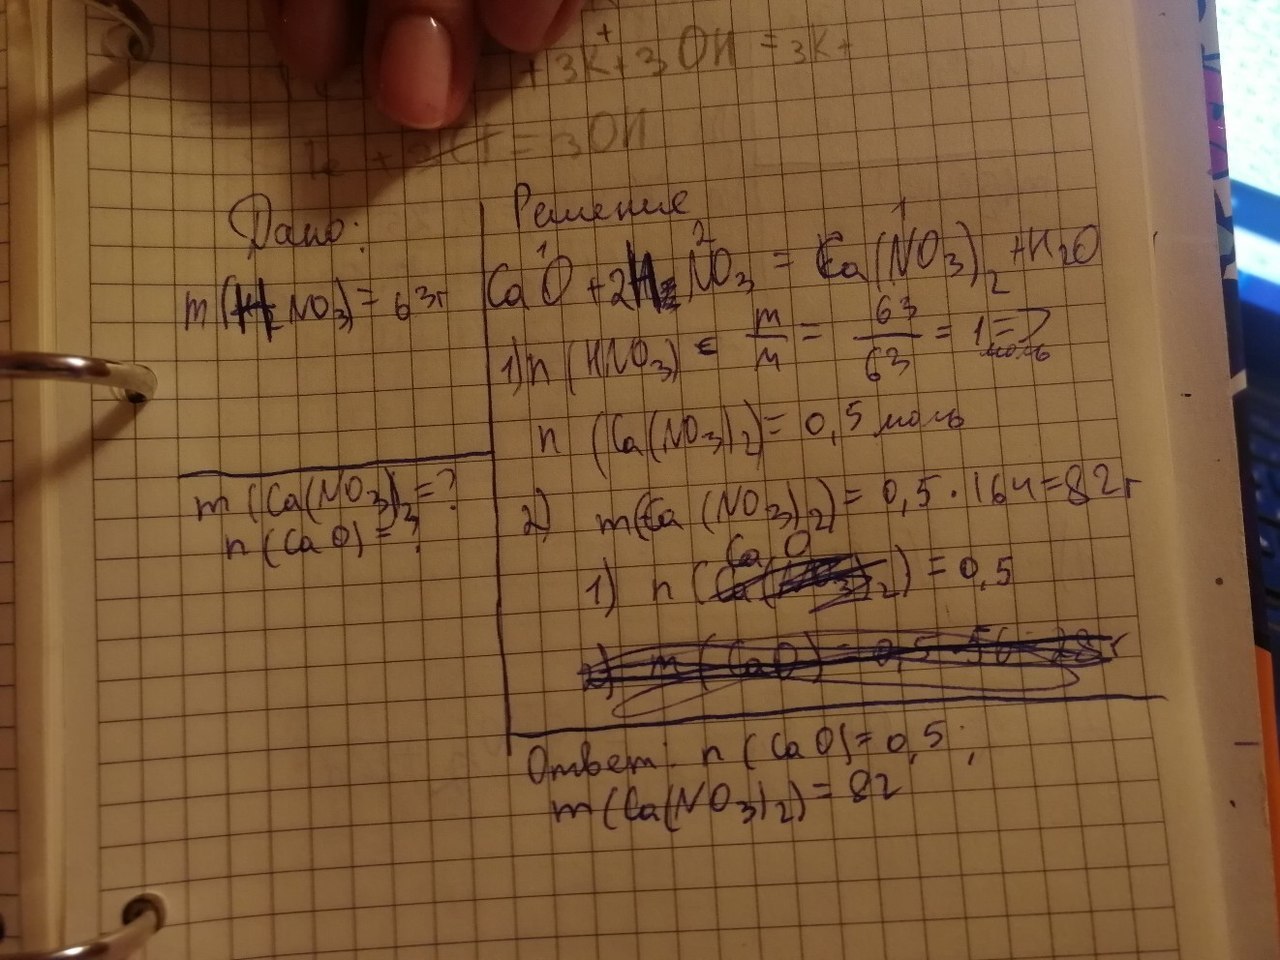 + 3K⁺ + 3OH = 3K+
= 3OH
Дано:
m(HNO₃) = 63г
m(Ca(NO₃)₂ = ?
n(CaO) = ?
Решение
1 2 1
CaO + 2HNO₃ = Ca(NO₃)₂ + H₂O
1) n(HNO₃) = m/M = 63/63 = 1 моль =>
n (Ca(NO₃)₂) = 0,5 моль
2) m(Ca(NO₃)₂) = 0,5 · 164 = 82г
1) n(CaO) = 0,5
2) m(CaO) = 0,5 · 56 = 28г
Ответ: n(CaO) = 0,5;
m(Ca(NO₃)₂) = 82